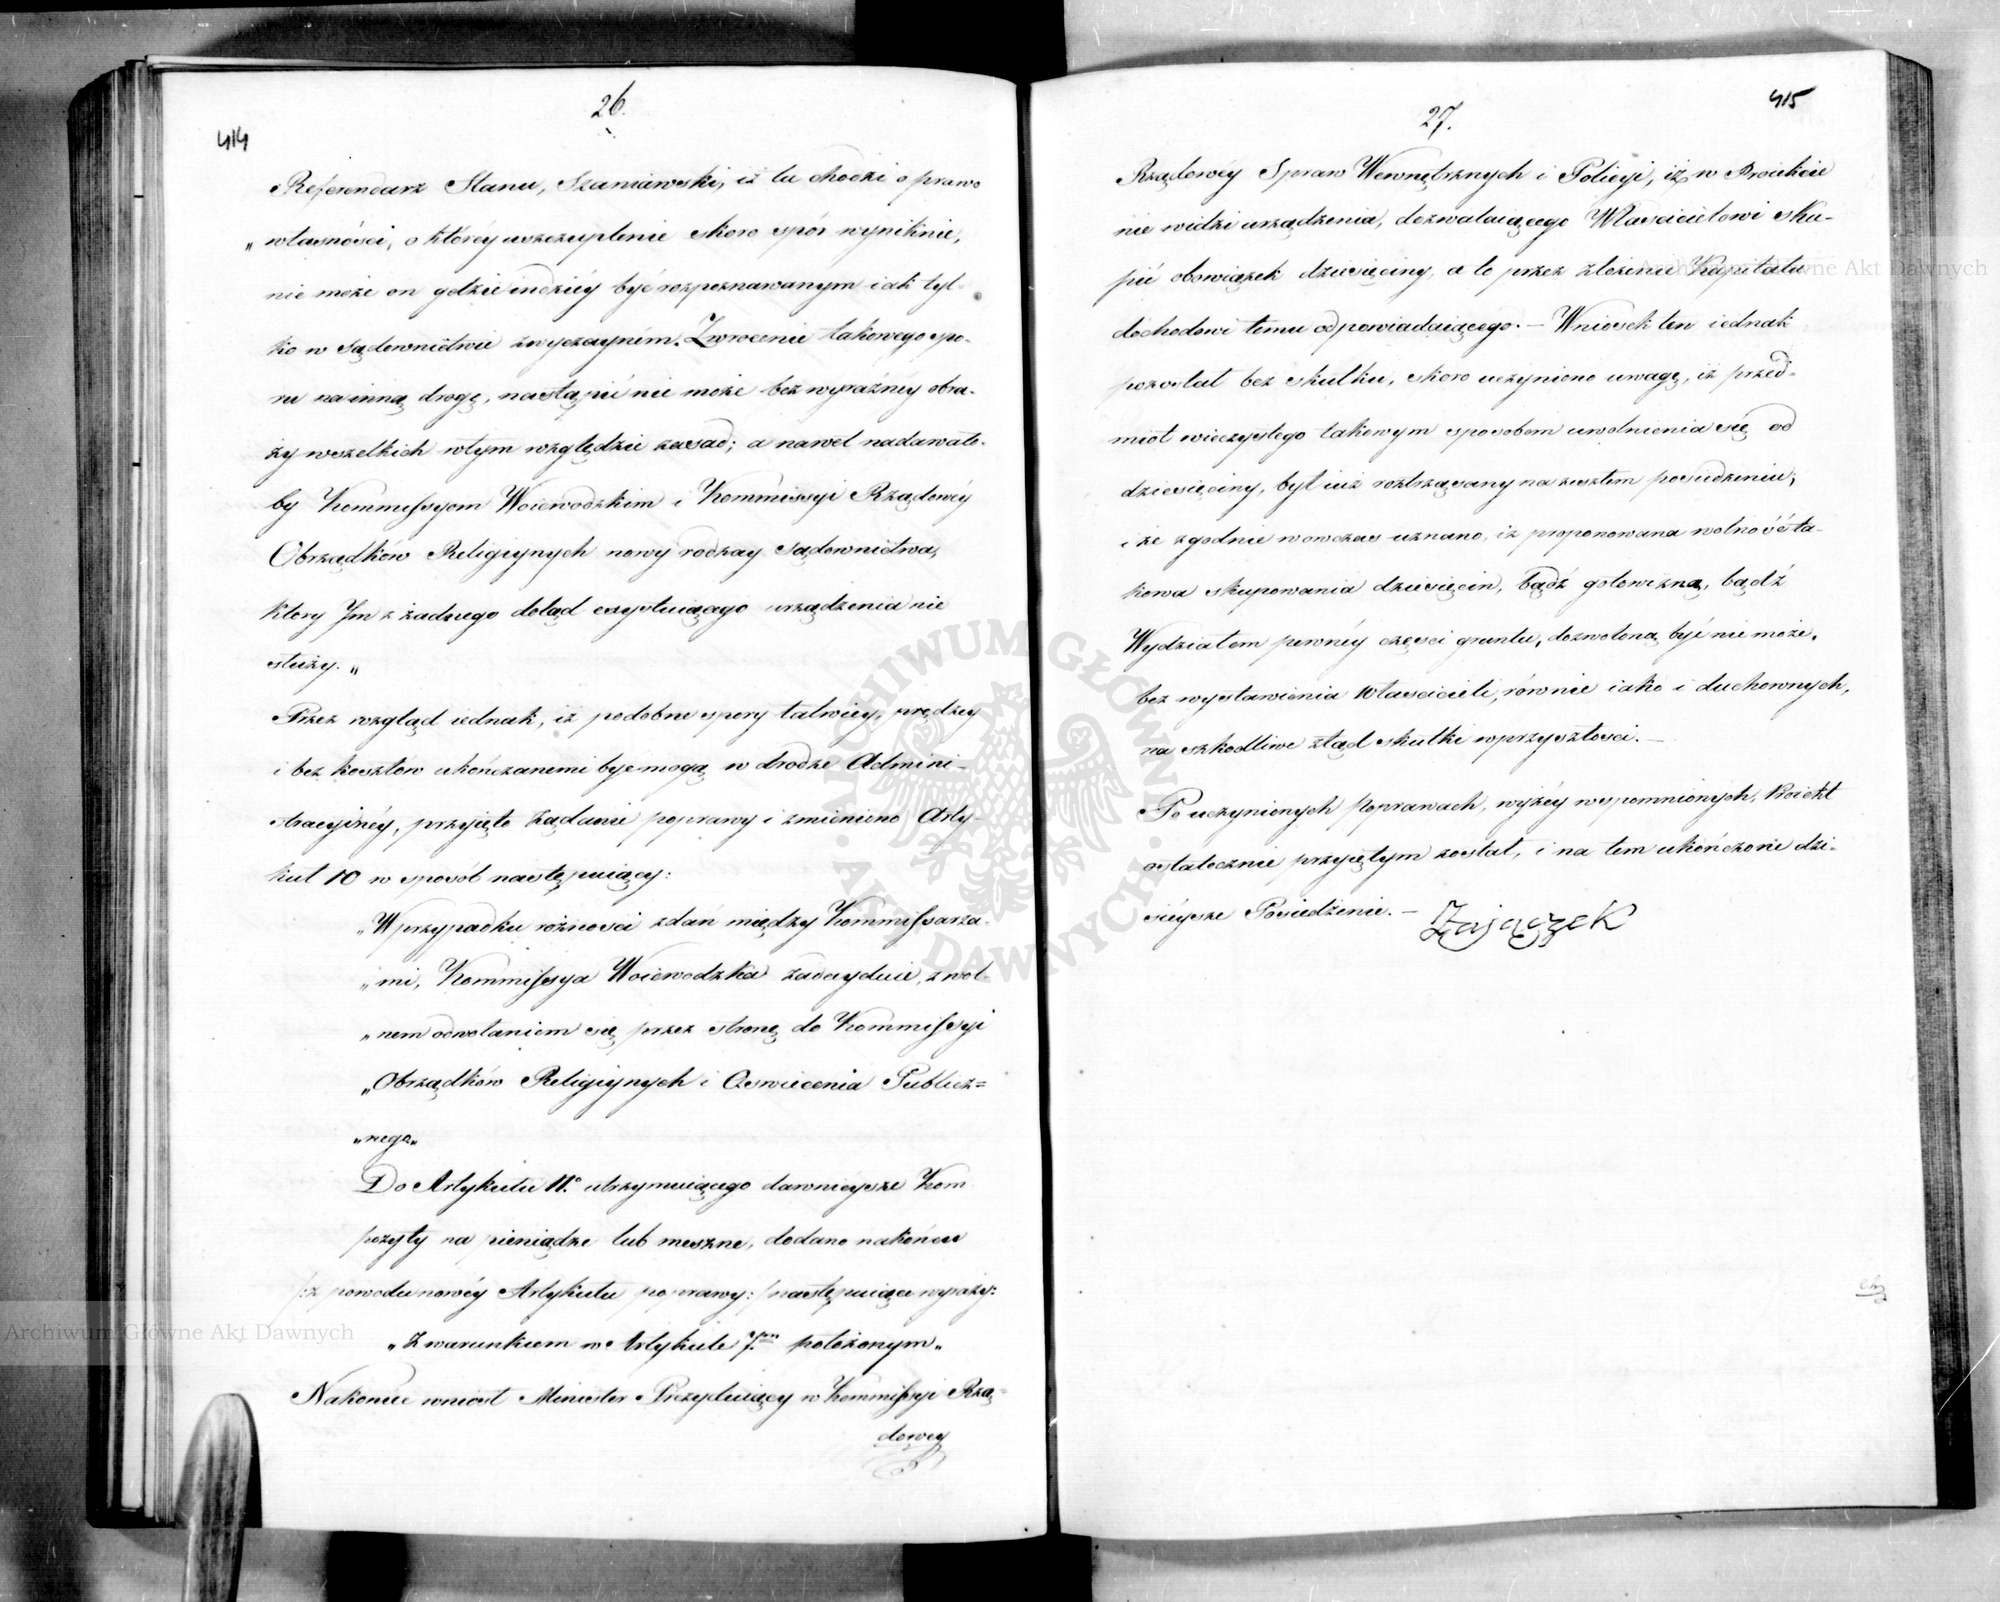 414
26.
Referendarz Stanu, Szaniawski, iż tu chodzi o prawo
„własności, o któréy uszczuplenie skoro spór wyniknie,
nie może on gdzie indziéy być rozpoznawanym iak tyl-
ko w sądownictwie zwyczayném. Zwrócenie takowego spo-
ru na inną drogę, nastąpić nie może bez wyraźnéy obra-
zy wszelkich w tym względzie zasad; a nawet nadawało-
by Kommissyom Woiewodzkim i Kommissyi Rządowéy
Obrządków Religiynych nowy rodzay sądownictwa,
ktory Im z żadnego dotąd exystuiącego urządzenia nie
służy.„
Przez wzgląd iednak, iż podobne spory łatwiéy, prędzey
i bez kosztów ukończanemi być mogą w drodze Admini-
stracyinéy, przyięto żądanie poprawy i zmieniono Arty-
kuł 10 w sposób następuiący:
„W przypadku rożności zdań między Kommissarza-
„mi, Kommissya Woiewodzka zadecyduie, z wol-
„nem odwołaniem się przez stronę do Kommissyi
„Obrządków Religiynych i Oswiecenia Publicz=
„nego„
Do Artykułu 11.° utrzymuiącego dawnieysze Kom
pozyty na pieniądze lub meszne, dodano na końcu
/:z powodu nowéy Artykułu poprawy:/ następuiące wyrazy:
„Z warunkiem w Artykule 7.ym położonym„
Nakoniec wniosł Minister Prezyduiący w Kommissyi Rzą=
dowey
415
27.
Rządowéy Spraw Wewnętrznych i Policyi, iż w Proiekcie
nie widzi urządzenia, dozwalaiącego Właścicielowi sku-
pić obowiązek dziesięciny, a to przez złożenie Kapitału
dochodowi temu odpowiadaiącego. — Wniosek ten iednak
pozostał bez skutku, skoro uczyniono uwagę, iż przed-
miot wieczystego takowym sposobem uwolnienia się od
dziesięciny, był iuż roztrząsany na zeszłem posiedzeniu,
i że zgodnie wowczas uznano, iż proponowana wolność ta-
kowa skupowania dziesięcin, bądź gotowizną, bądź
Wydziałem pewnéy części gruntu, dozwoloną być nie może,
bez wystawienia Właścicieli, równie iako i duchownych,
na szkodliwe ztąd skutki w przyszłości. —
Po uczynionych poprawach, wyżéy wspomnionych, Proiekt
ostatecznie przyiętym został, i na tem ukończone dzi-
sieysze Posiedzenie. —
Zajączek
Archiwum Główne Akt Dawnych
Archiwum Główne Akt Dawnych
ARCHIWUM GŁÓWNE AKT DAWNYCH